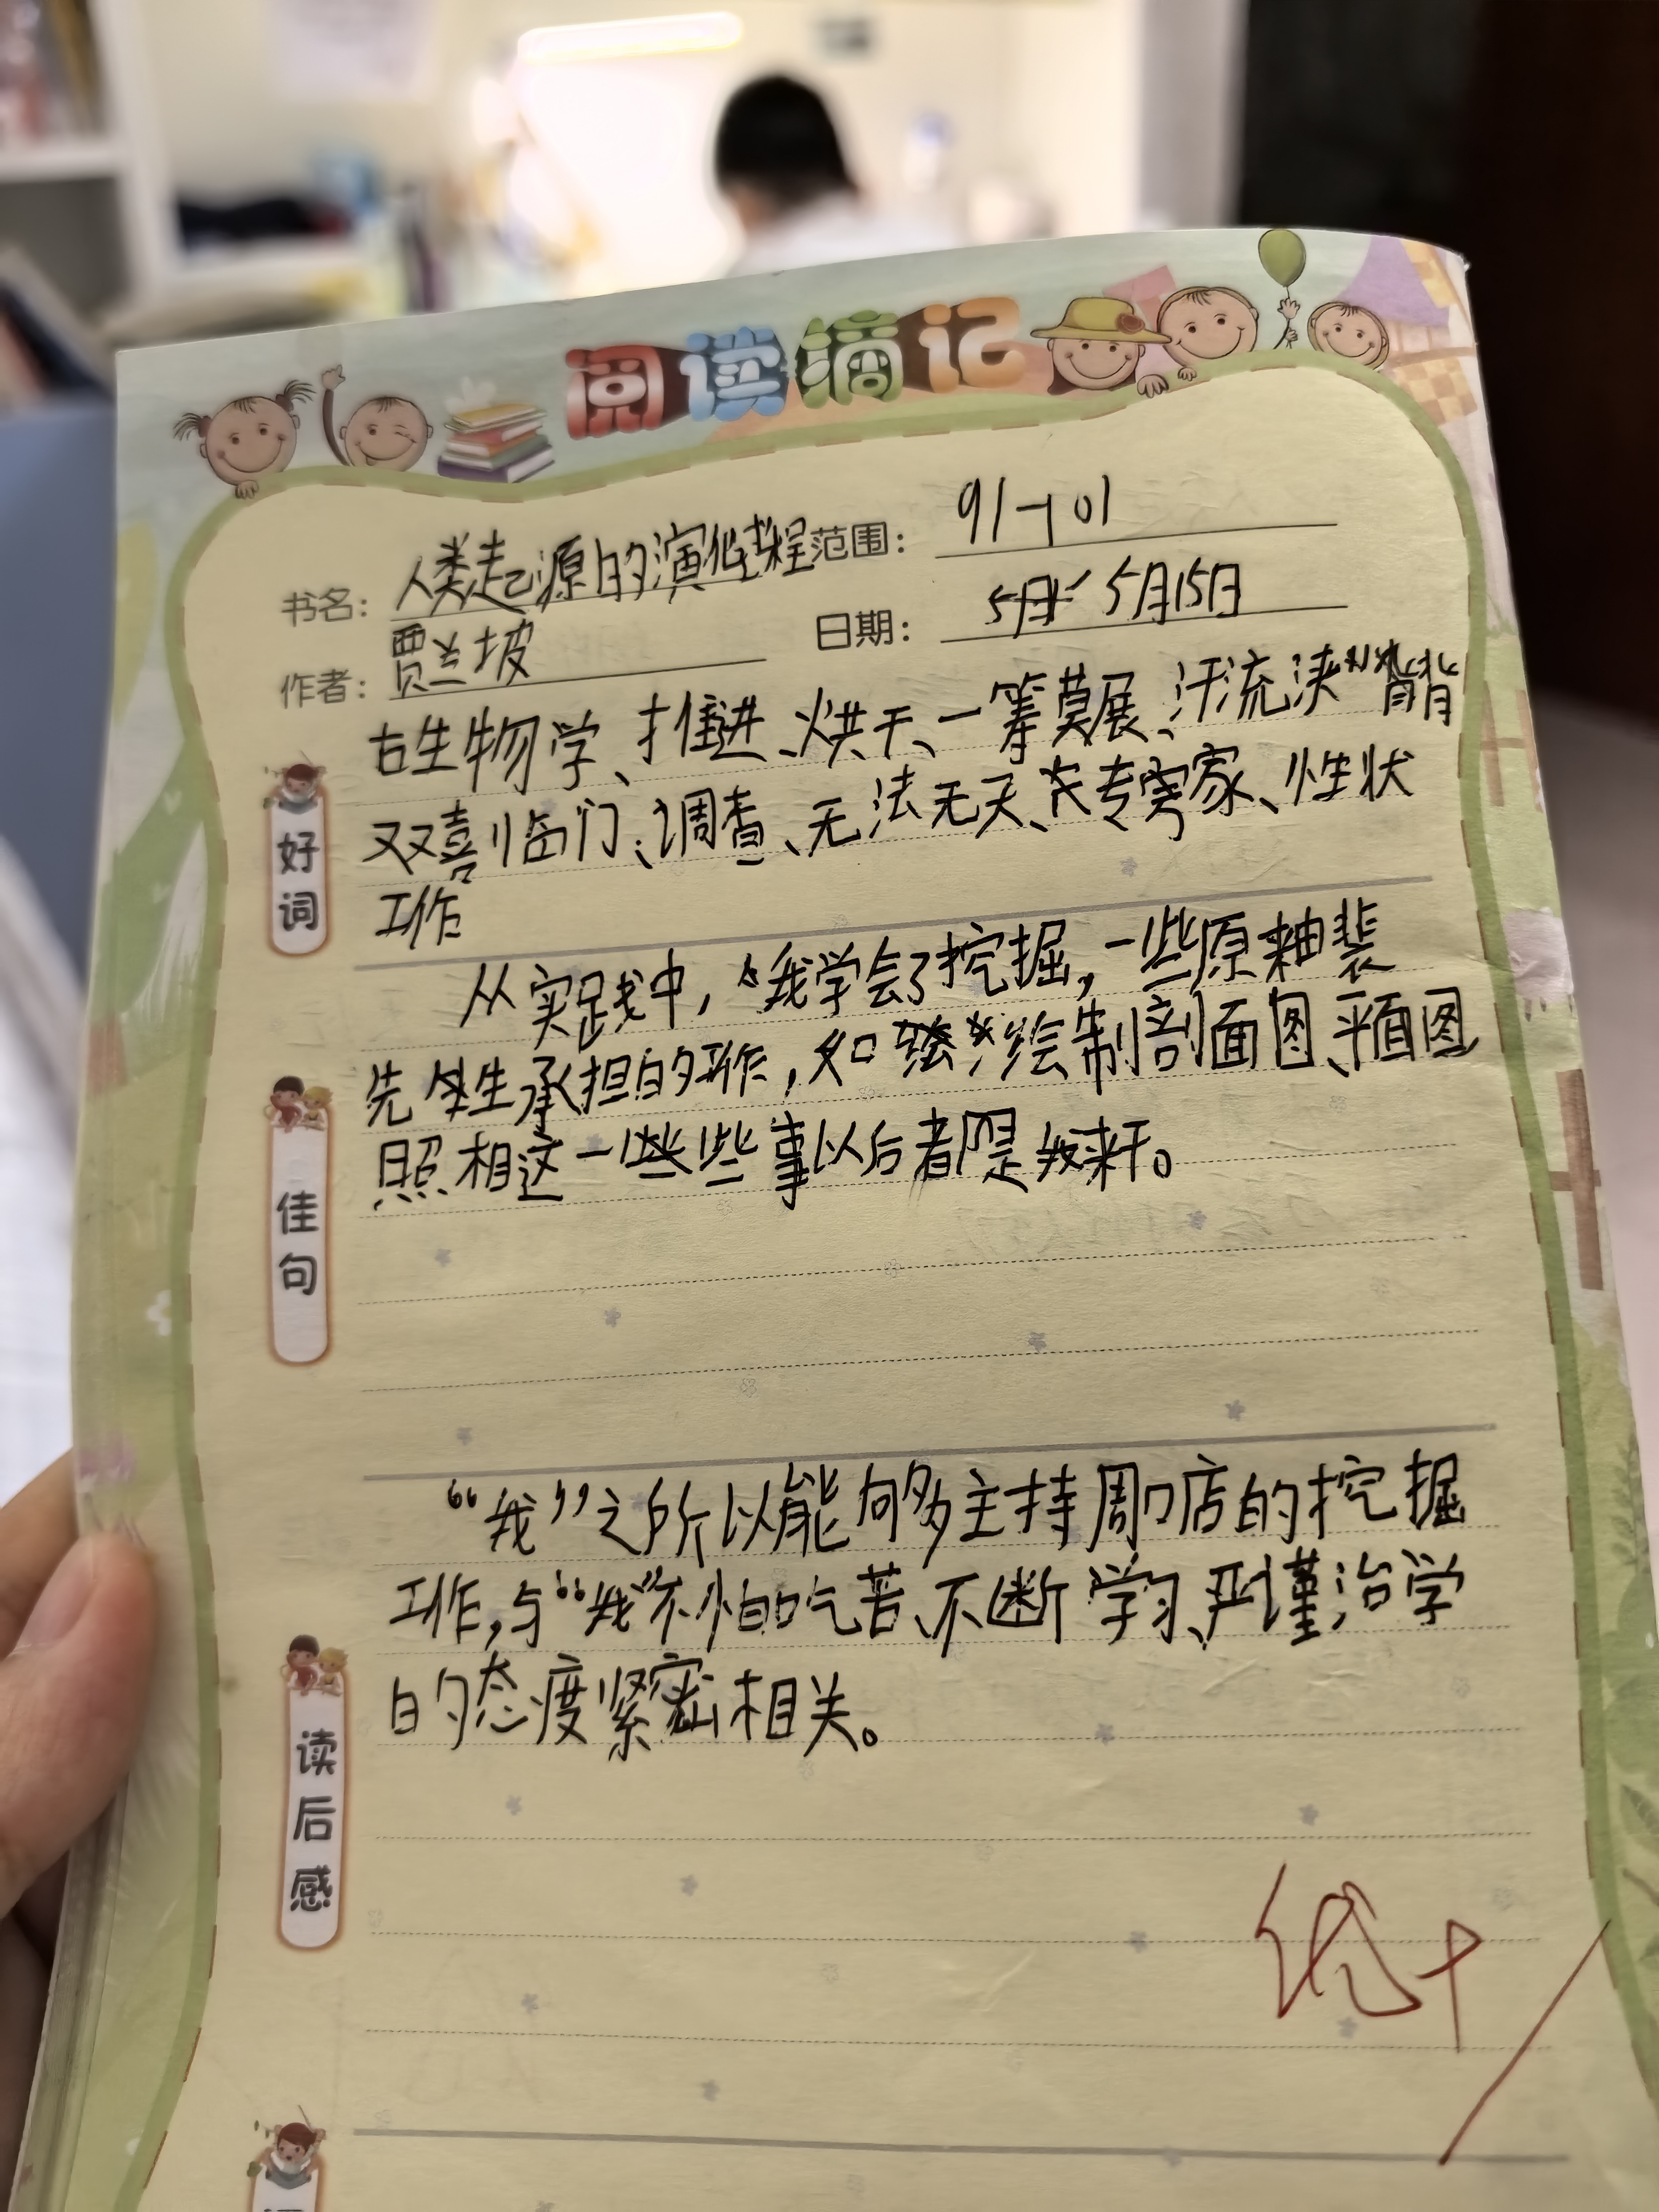 阅读摘记
书名: 人类起源的演化过程 范围: 91-101
作者: 贾兰坡 日期: 5月15日
好词
古生物学、推进、烘干、一筹莫展、汗流浃背
双喜临门、调查、无法无天、专家、性状
工作
佳句
从实践中,我学会了挖掘,一些原来由裴
先生承担的工作,如绘制剖面图、平面图
照相这一些事以后都是我来干。
读后感
“我”之所以能够主持周口店的挖掘
工作,与“我”不怕吃苦、不断学习、严谨治学
的态度紧密相关。
优+